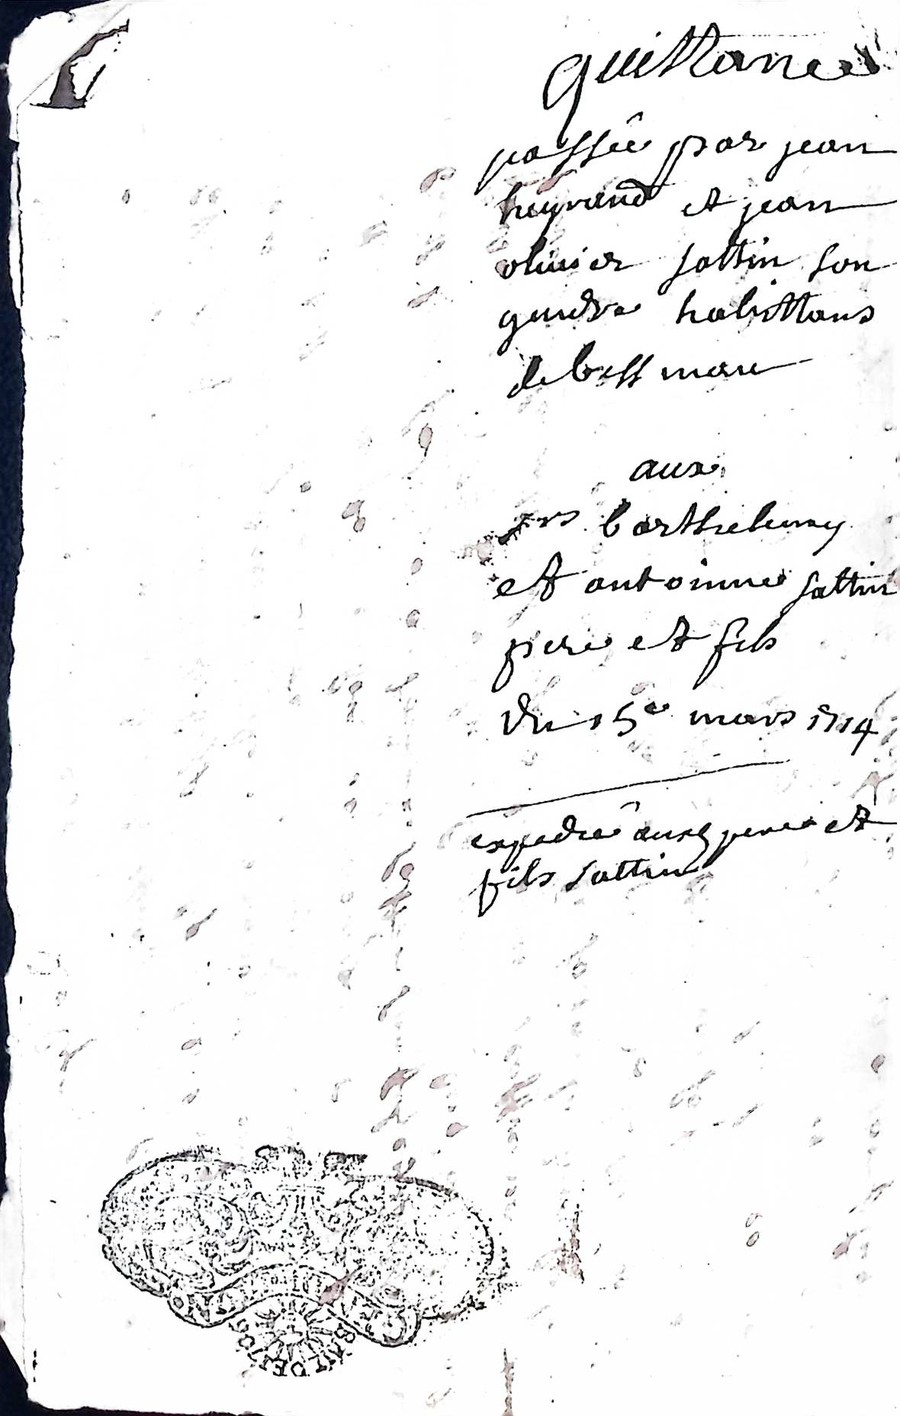 quittance
passée par jean
heyraud et jean
olivier sattin son
gendre habittans
de bessman
aux
srs barthelemy
et antoinne sattin
pere et fils
du 15e mars 1714
expediée auxd pere et
fils sattin